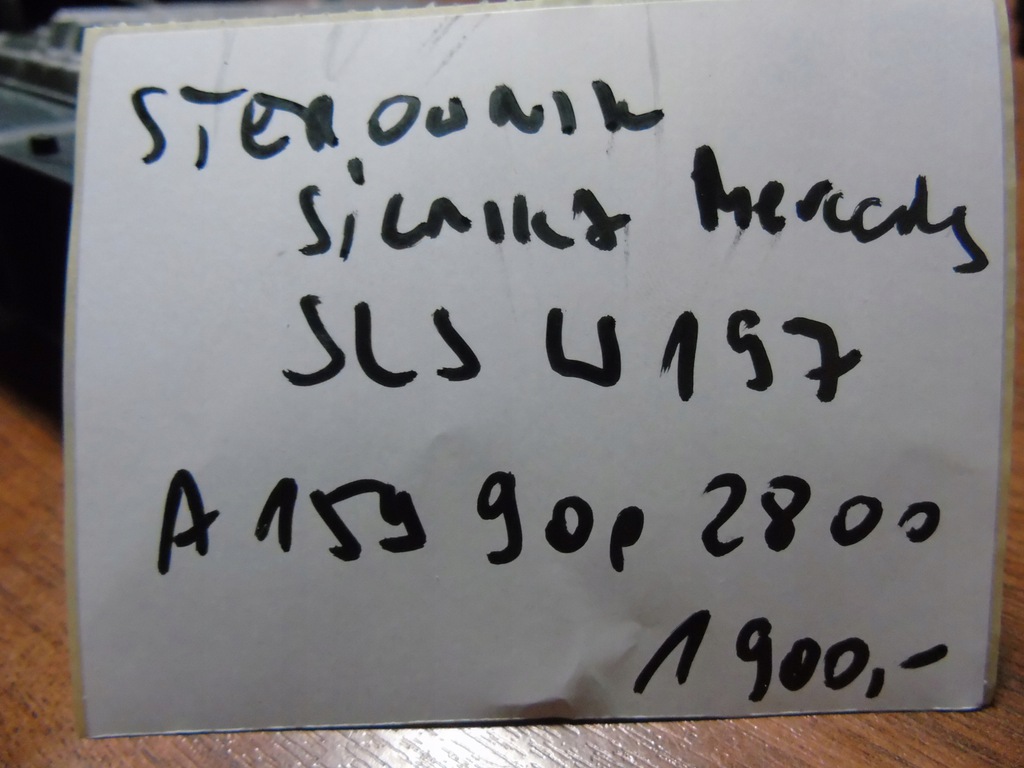 STEROWNIK
SILNIKA Mercedes
SLS W197
A 159 900 2800
1900,-